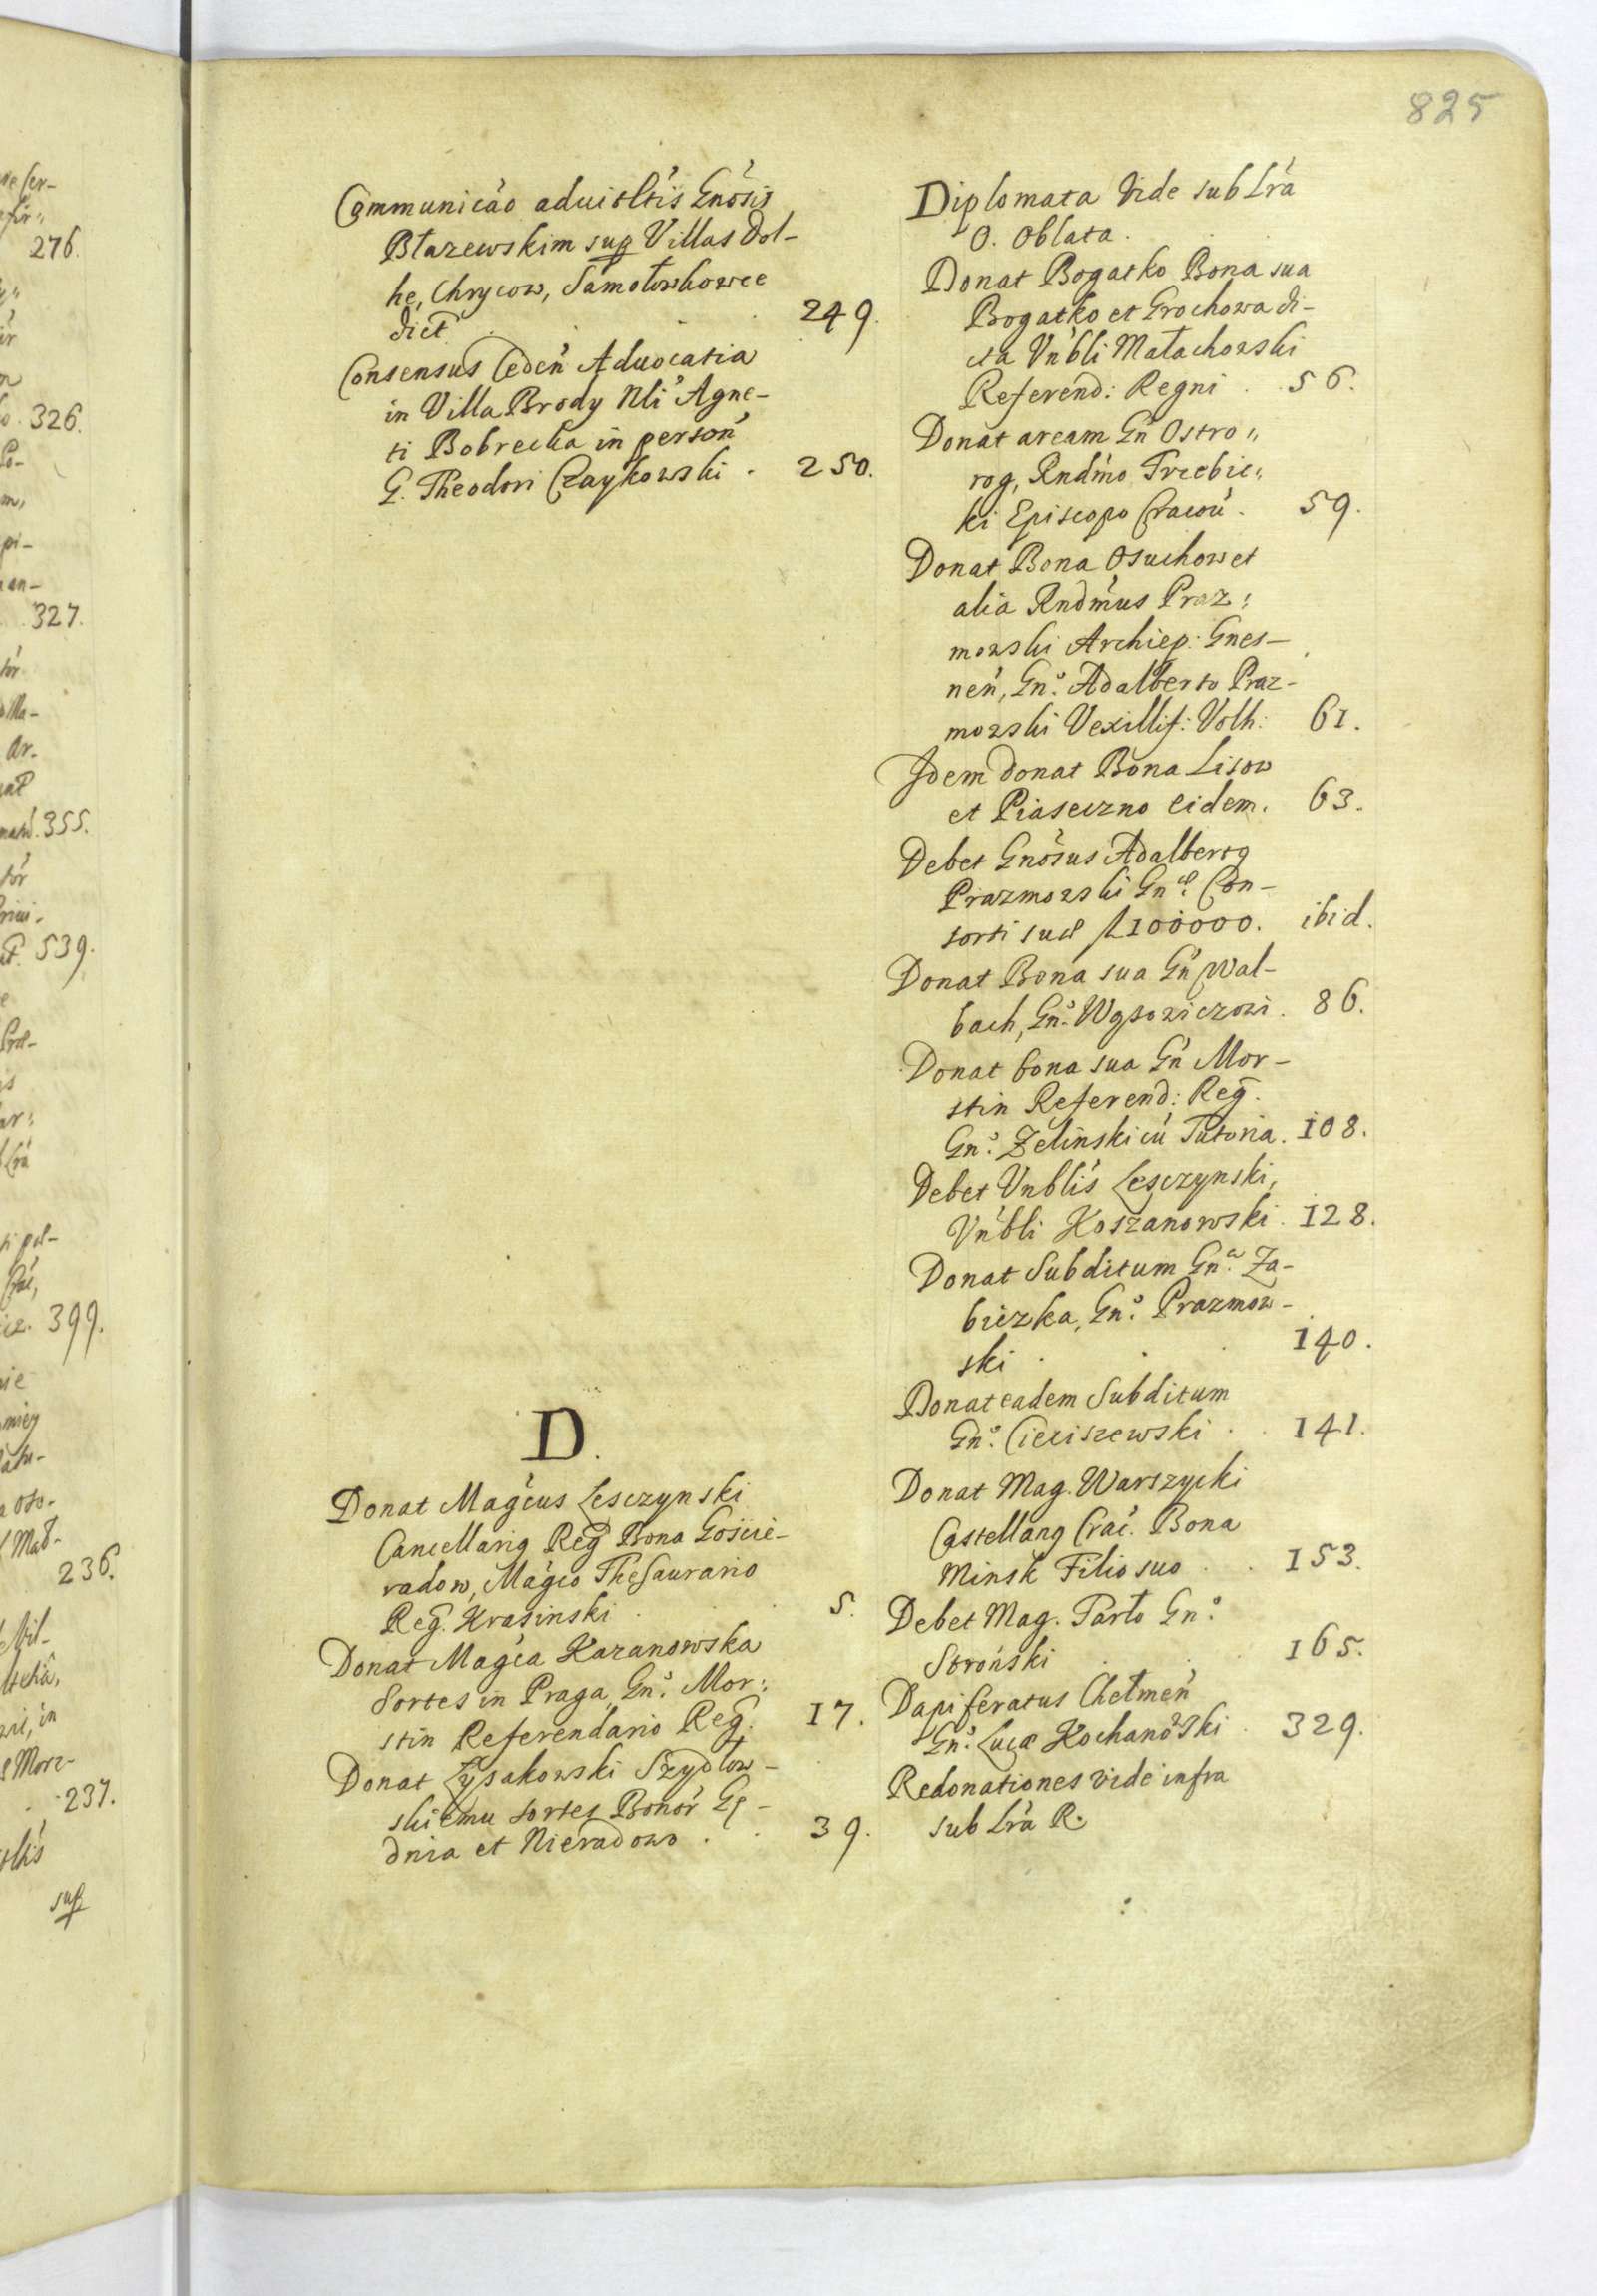 825
Communicáo aduitltis Gnosis
Błazewskim sup Villas Dol-
he, Chrycow, Samołowkowce
dict. 249.
Consensus Ceden Aduocatia
in Villa Brody Nli Agne-
ti Bobrecka in person
G. Theodori Czaykowski . 250.
D.
Donat Magcus Lesczynski
Cancellarig Reg Bona Goscie-
radow, Magco Thesaurario
Reg. Krasinski . 5.
Donat Magca Kazanowska
Sortes in Praga, Gn: Mor:
stin Referendario Reg. 17.
Donat Łysakowski Szydlow-
skiemu sortes Bonor
dnia et Nieradowo . . 39.
Diplomata Vide sub Lra
O. Oblata.
Donat Bogatko Bona sua
Bogatko et Grochowa di-
cta Vnbli Małachowski
Referend: Regni . . 56.
Donat aream Gn Ostro„
rog, Rndmo Trzebic„
ki Episcopo Cracou . 59.
Donat Bona Osuchow et
alia Rndmus Praz:
mowski Archiep: Gnes-
nen, Gn:o Adalberto Praz-
mowski Vexillif: Volh: 61.
Idem donat Bona Lisow
et Piaseczno eidem. 63.
Debet Gnosus Adalbertg
Prazmowski Gn:æ Con-
sorti suæ fl 100000. ibid.
Donat Bona sua Gn Wal-
bach, Gn:o Wąsowiczowi . 86.
Donat bona sua Gn Mor-
stin Referend: Reg.
Gn:o Zelinski cu Tutoria. 108.
Debet Vnblis Lesczynski,
Vnbli Koszanowski . 128.
Donat Subditum Gn:a Za-
biczka, Gn:o Prazmow-
ski . . . 140.
Donat eadem Subditum
Gn:o Cieciszewski . . 141.
Donat Mag. Warszycki
Castellang Crac. Bona
Minsk Filio suo . . 153.
Debet Mag. Tarło Gn:o
Stroński . . . 165.
Dapiferatus Chełmen
Gn:o Lucæ Kochanowski . 329.
Redonationes vide infra
sub Lra R.
276.
326.
327.
355.
539.
399.
236.
237.
sup